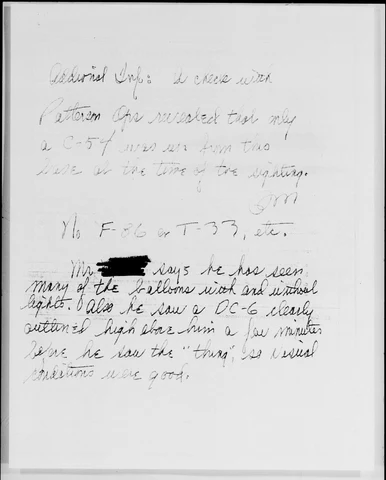 Additional Info: A check with
Patterson Ops revealed that only
a C-54 was up from this
base at the time of the sighting.
No F-86 or T-33, etc.
Mr. says he has seen
many of the balloons with and without
lights. Also he saw a DC-6 clearly
outlined high above him a few minutes
before he saw the "thing", so visual
conditions were good.